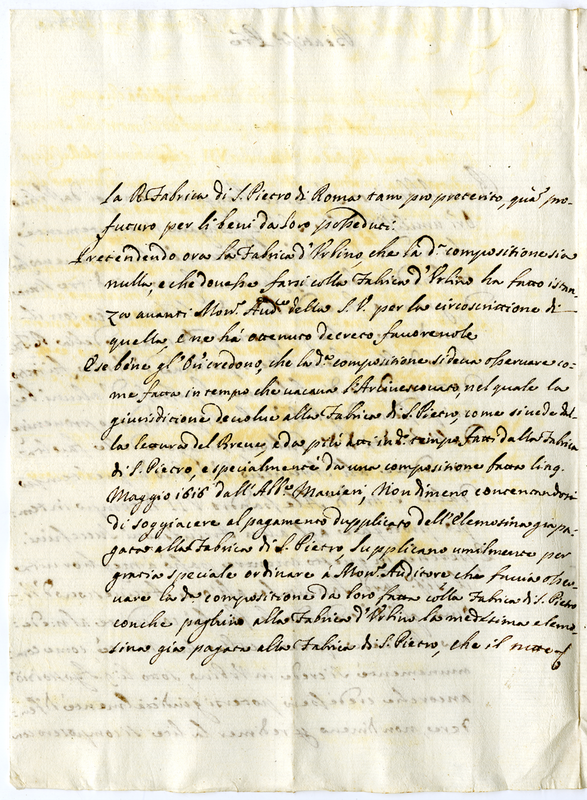 la R. Fabrica di S. Pietro di Roma tam pro preterito, quã pro-
futuro per li beni da loro posseduti.
Pretendendo ora la Fabrica d'Urbino, che la d.ª compositione sia
nulla, e che dovesse farsi colla Fabrica d'Urbino ha fatto istan-
za avanti Mons.r Aud.re della S.V. per la circoscrittione di
quella, e ne há ottenuto decreto favorevole
E se bene gl' credono, che la d.ª compositione si deva osservare co-
me fatta in tempo che vacava l'Arcivescovato, nel quale la
giurisditione devolve alla Fabrica di S. Pietro, come si vede dal-
la letura del Breve, e da più atti in d.º tempo fatti dalla Fabrica
di S. Pietro, e specialmente da una compositione fatta li
Maggio 1616 dall' Nondimeno contentandosi
di soggiacere al pagamento dupplicato dell'Elemosina gia pa-
gata alla Fabrica di S. Pietro, Supplicano umilmente per
gracia speciale ordinare á Mons.r Auditore che faccia osser-
vare la d.ª compositione da loro fatta colla Fabrica di S. Pietro
con che paghino alla Fabrica d'Urbino la medesima elemo-
sina gia pagata alla Fabrica di S. Pietro, che il tutto